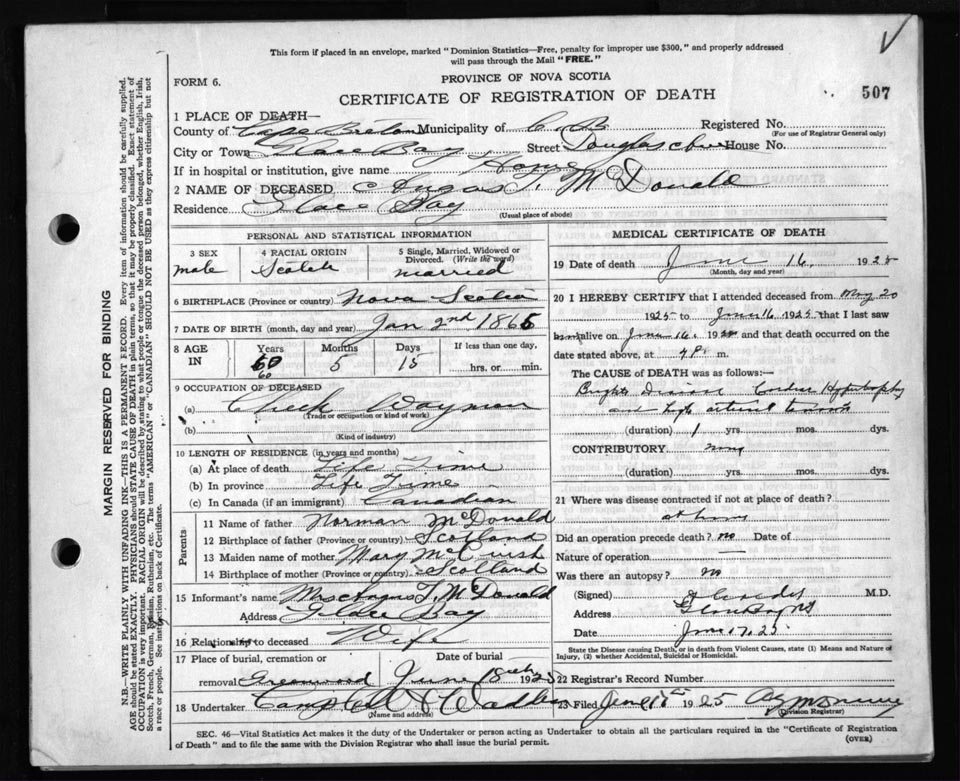 This form if placed in an envelope, marked "Dominion Statistics—Free, penalty for improper use $300," and properly addressed
will pass through the Mail "FREE."
FORM 6.
PROVINCE OF NOVA SCOTIA
CERTIFICATE OF REGISTRATION OF DEATH
507
1 PLACE OF DEATH—
County of Cape Breton Municipality of C. B Registered No.
(For use of Registrar General only)
City or Town Glace Bay Street Douglas Ave House No.
If in hospital or institution, give name Home
2 NAME OF DECEASED Angus T. McDonald
Residence Glace Bay
(Usual place of abode)
PERSONAL AND STATISTICAL INFORMATION
3 SEX 4 RACIAL ORIGIN 5 Single, Married, Widowed or Divorced. (Write the word)
male Scotch married
6 BIRTHPLACE (Province or country) Nova Scotia
7 DATE OF BIRTH (month, day and year) Jan 2nd 1865
8 AGE IN Years Months Days If less than one day,
60 5 15 hrs. or min.
60
9 OCCUPATION OF DECEASED
(a) Check Weyman
(Trade or occupation or kind of work)
(b)
(Kind of industry)
10 LENGTH OF RESIDENCE (in years and months)
(a) At place of death Life Time
(b) In province Life Time
(c) In Canada (if an immigrant) Canadian
Parents
11 Name of father Norman McDonald
12 Birthplace of father (Province or country) Scotland
13 Maiden name of mother Mary McCuish
14 Birthplace of mother (Province or country) Scotland
15 Informant's name Mrs Angus T. McDonald
Address Glace Bay
16 Relationship to deceased Wife
17 Place of burial, cremation or Date of burial
removal Greenwood June 18th 1925
18 Undertaker Campbell &
(Name and address)
MEDICAL CERTIFICATE OF DEATH
19 Date of death June 16, 1925
(Month, day and year)
20 I HEREBY CERTIFY that I attended deceased from May 20
1925 to June 16 1925 that I last saw
him alive on June 16, 1925 and that death occurred on
the date stated above, at m.
The CAUSE of DEATH was as follows:—
Brights Disease Cardiac Hypertrophy
and high arterial tension
(duration) 1 yrs. mos. dys.
CONTRIBUTORY
(duration) yrs. mos. dys.
21 Where was disease contracted if not at place of death?
at home
Did an operation precede death? no Date of
Nature of operation
Was there an autopsy? no
(Signed) M.D.
Address Glace Bay NS
Date June 17, 25
State the Disease causing Death, or in death from Violent Causes, state (1) Means and Nature of
Injury, (2) whether Accidental, Suicidal or Homicidal.
22 Registrar's Record Number
23 Filed June 18th 1925
(Division Registrar)
SEC. 46—Vital Statistics Act makes it the duty of the Undertaker or person acting as Undertaker to obtain all the particulars required in the "Certificate of Registration
of Death" and to file the same with the Division Registrar who shall issue the burial permit.
(OVER)
MARGIN RESERVED FOR BINDING
N.B.—WRITE PLAINLY WITH UNFADING INK—THIS IS A PERMANENT RECORD. Every item of information should be carefully supplied.
AGE should be stated EXACTLY. PHYSICIANS should STATE CAUSE OF DEATH in plain terms, so that it may be properly classified. Exact statement of
OCCUPATION is very important. RACIAL ORIGIN will be described by stating to what people or tongue the deceased person belonged, whether English, Irish,
Scotch, French, German, Russian, Ruthenian, etc. The terms "AMERICAN" or "CANADIAN" SHOULD NOT BE USED as they express citizenship but not
a race or people. See instructions on back of Certificate.